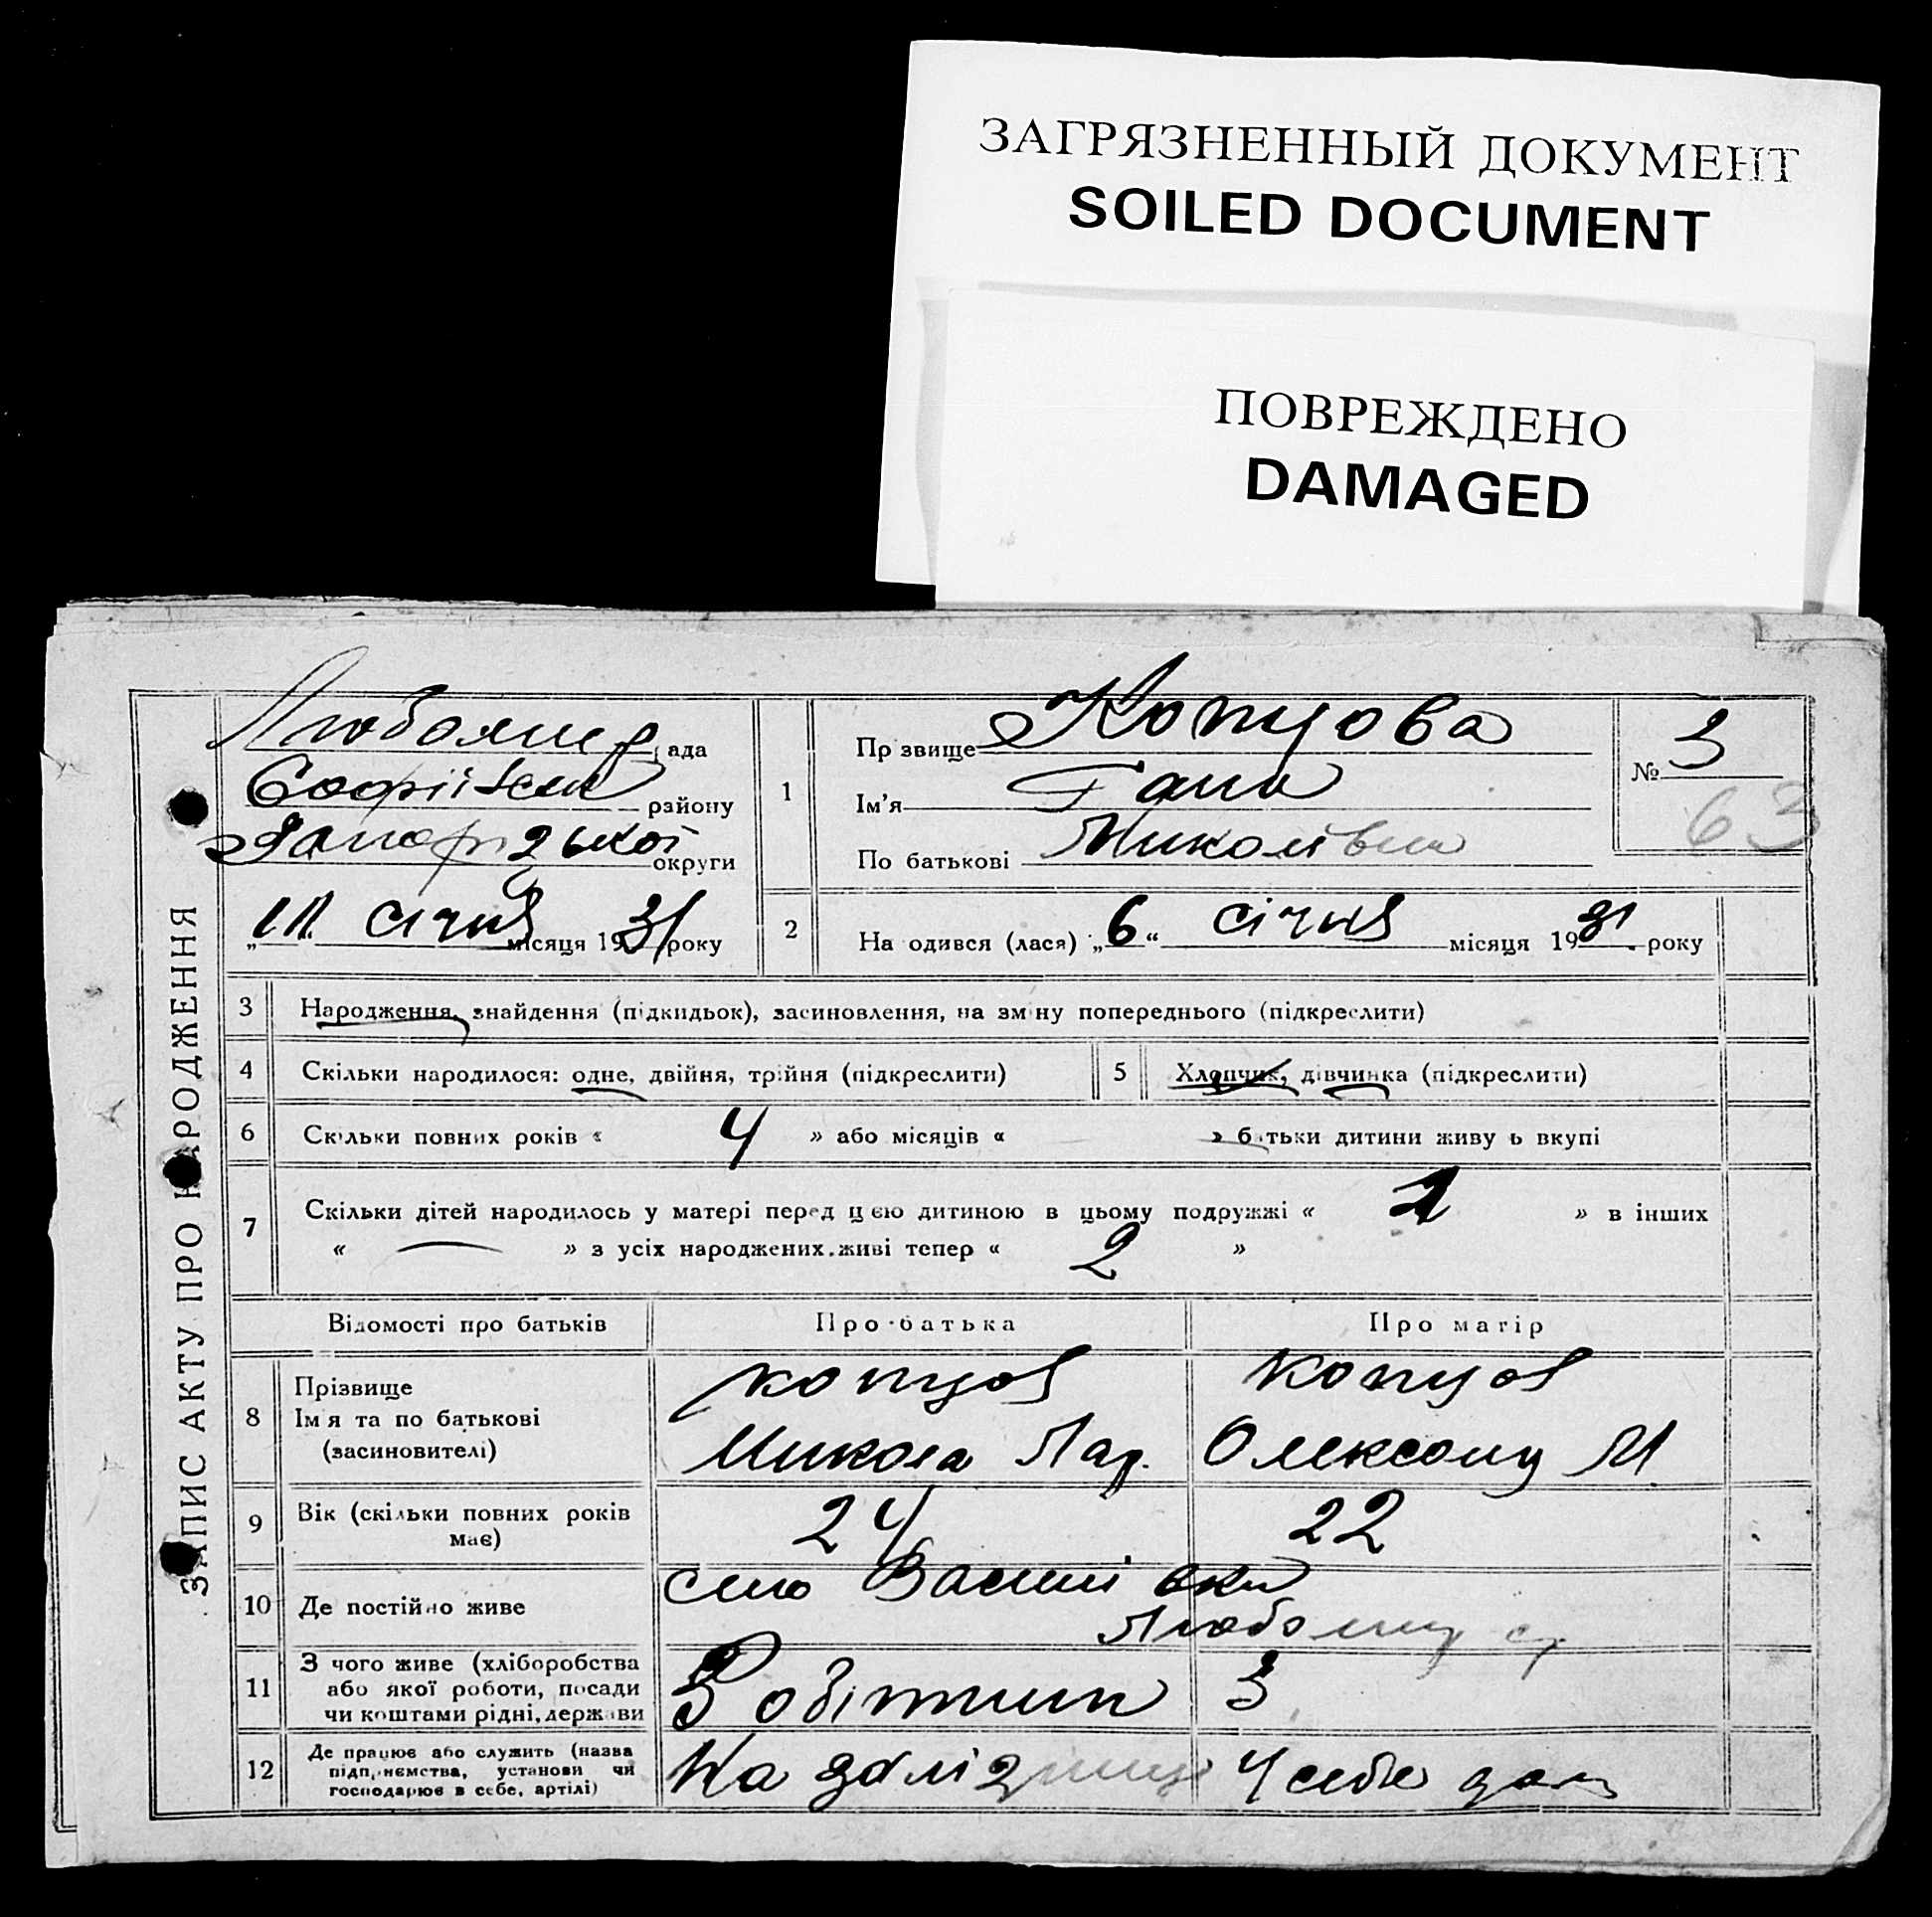 ЗАГРЯЗНЕННЫЙ ДОКУМЕНТ
SOILED DOCUMENT
ПОВРЕЖДЕНО
DAMAGED
ЗАПИС АКТУ ПРО НАРОДЖЕННЯ
ада
району
округи
січня місяця 1931 року
1
Пр звище Копцова
Ім'я Гана
По батькові Миколівна
№ 3
63
2
На одився (лася) „6“ січня місяця 1931 року
3 Народження, знайдення (підкидьок), засиновлення, на зміну попереднього (підкреслити)
4 Скільки народилося: одне, двійня, трійня (підкреслити)
5 Хлопчик, дівчинка (підкреслити)
6 Скільки повних років « 4 » або місяців « » батьки дитини живу ь вкупі
7 Скільки дітей народилось у матері перед цією дитиною в цьому подружжі « 1 » в інших
« — » з усіх народжених живі тепер « 2 »
Відомості про батьків Про батька Про матір
8 Прізвище Копцов Копцов
Ім я та по батькові
(засиновителі) Микола Лар. М
9 Вік (скільки повних років має) 24 22
10 Де постійно живе село
11 З чого живе (хліборобства
або якої роботи, посади
чи коштами рідні, держави
Робітник З
12 Де працює або служить (назва
підприємства, установи чи
господарює в себе, артілі)
На У себе дома